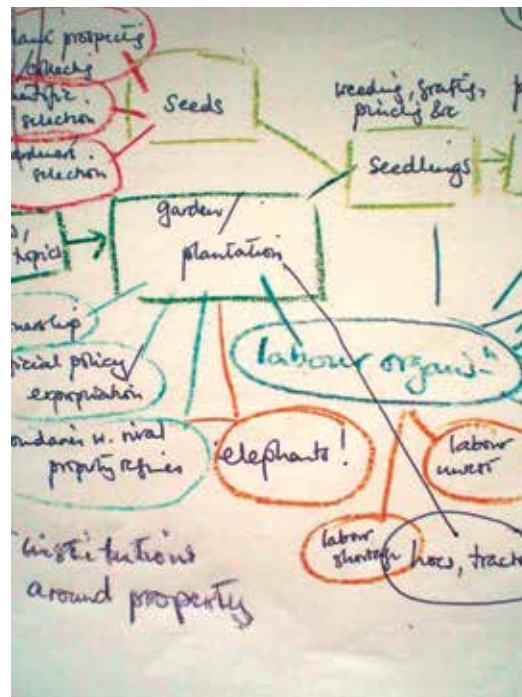 plant prospecting
collecting
selection
selection
Seeds
weeding, grafting,
pruning &c
Seedlings
garden/
plantation
official policy
expropriation
boundaries w. rival
property regimes
labour organisn
elephants!
labour
unrest
labour
shortage
hoes, tracto
institutions
around property